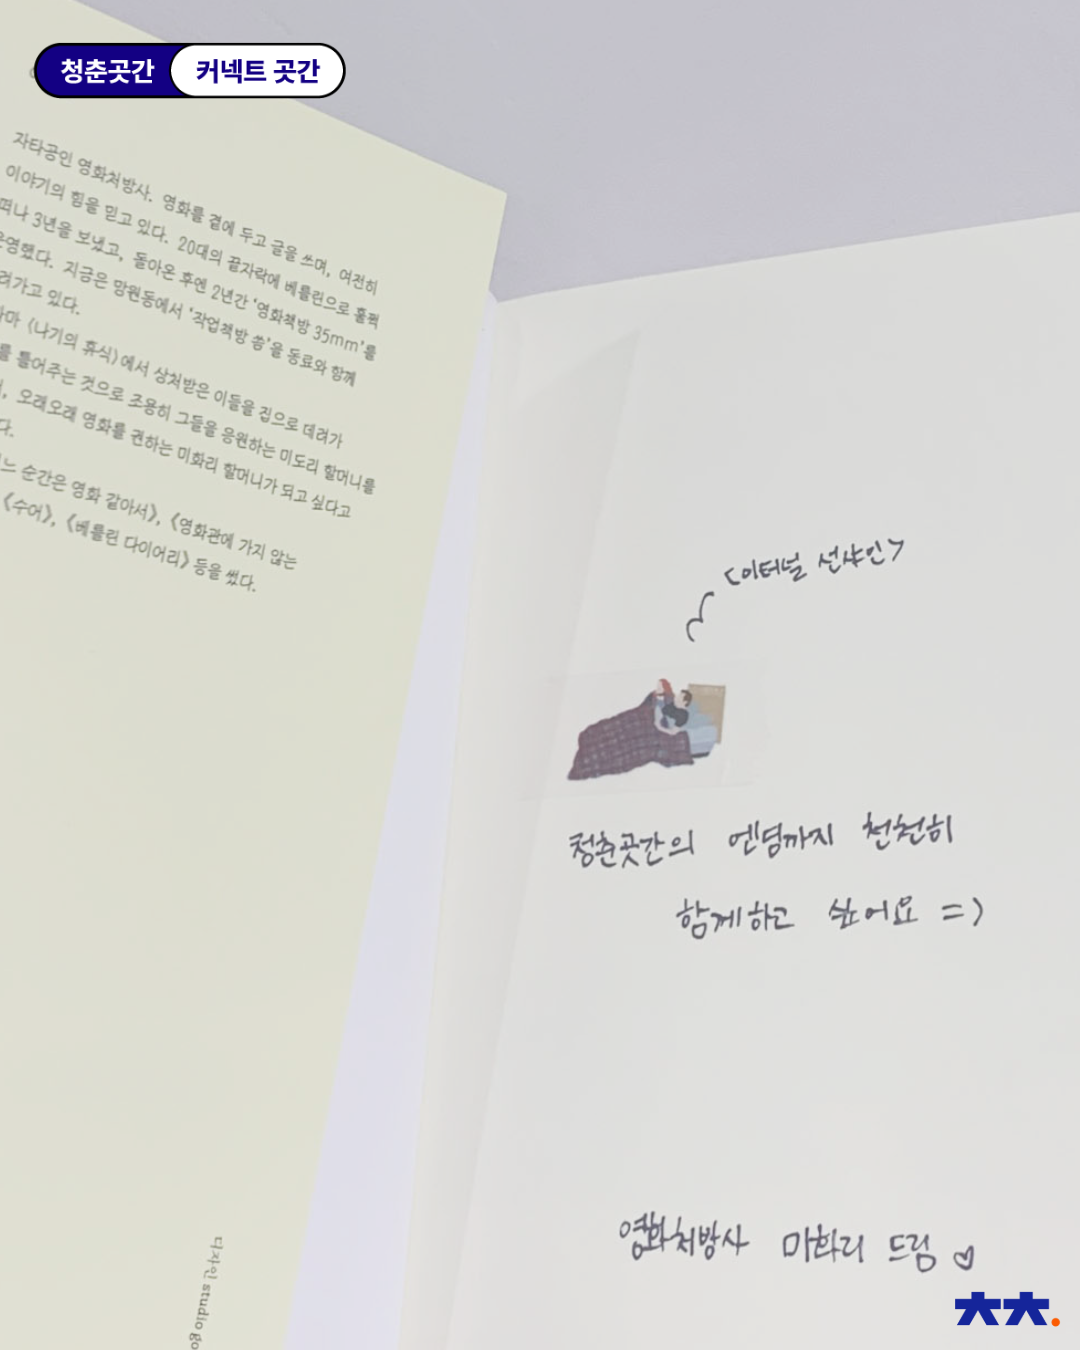 청춘곳간 커넥트 곳간
자타공인 영화처방사. 영화를 곁에 두고 글을 쓰며, 여전히
이야기의 힘을 믿고 있다. 20대의 끝자락에 베를린으로 훌쩍
떠나 3년을 보냈고, 돌아온 후엔 2년간 ‘영화책방 35mm’를
운영했다. 지금은 망원동에서 ‘작업책방 씀’을 동료와 함께
려가고 있다.
라마 〈나기의 휴식〉에서 상처받은 이들을 집으로 데려가
를 틀어주는 것으로 조용히 그들을 응원하는 미도리 할머니를
오래오래 영화를 권하는 미화리 할머니가 되고 싶다고
다.
느 순간은 영화 같아서》, 《영화관에 가지 않는
《수어》, 《베를린 다이어리》 등을 썼다.
디자인 studio go
<이터널 선샤인>
청춘곳간의 엔딩까지 천천히
함께하고 싶어요 =)
영화처방사 미화리 드림 ♡
ㅊㅊ.